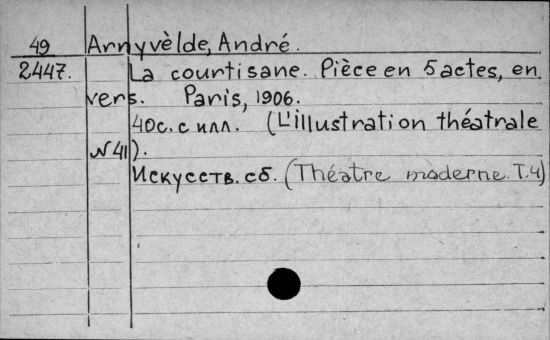 49 Arnyvèlde, André.
2447. La courtisane. Pièce en 5 actes, en
vers. Paris, 1906.
40с. с илл. (L'illustration théatrale
N 41).
Искусств. сб. (Théatre moderne. T.4)